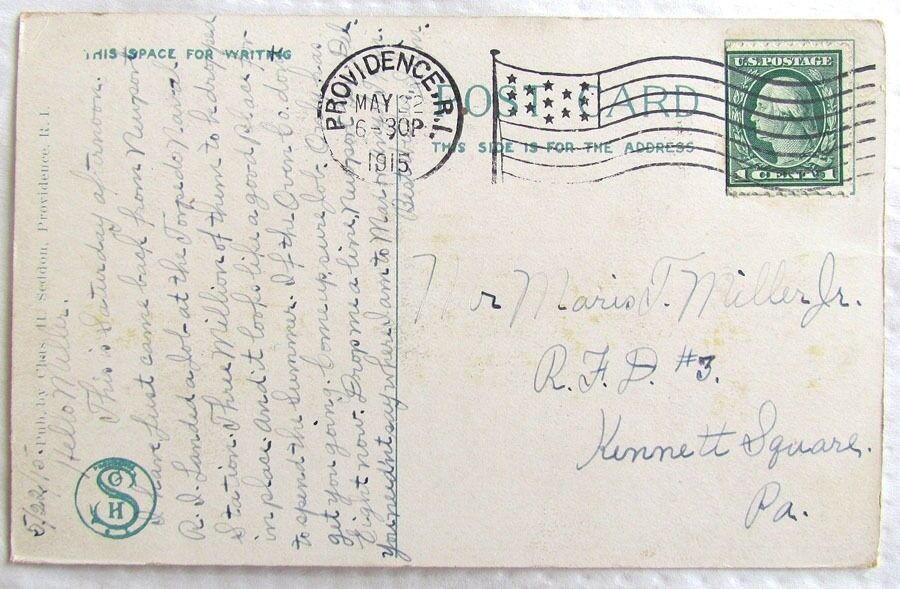 THIS SPACE FOR WRITING
POST CARD
THIS SIDE IS FOR THE ADDRESS
PROVIDENCE, R.I.
MAY 22
6-30P
1915
U.S. POSTAGE
1 CENT 1
Mr Maris T. Miller Jr.
R.F.D. #3.
Kennett Square.
Pa.
Pub. by Chas. H. Seddon, Providence, R. I.
5/22/15.
Hello Miller.
This is Saturday afternoon.
I have Just came back from Newport
R.I. Landed a Job at the Torpedo Naval
Station. Three Million of them to be dropped
in place. And it looks like a good place
to spend the Summer. If the Oven Co. don't
get you going. Come up, sure Job.
Right now. Drop me a line, Newport R.I.
You needn't say where I am to
S
C
H